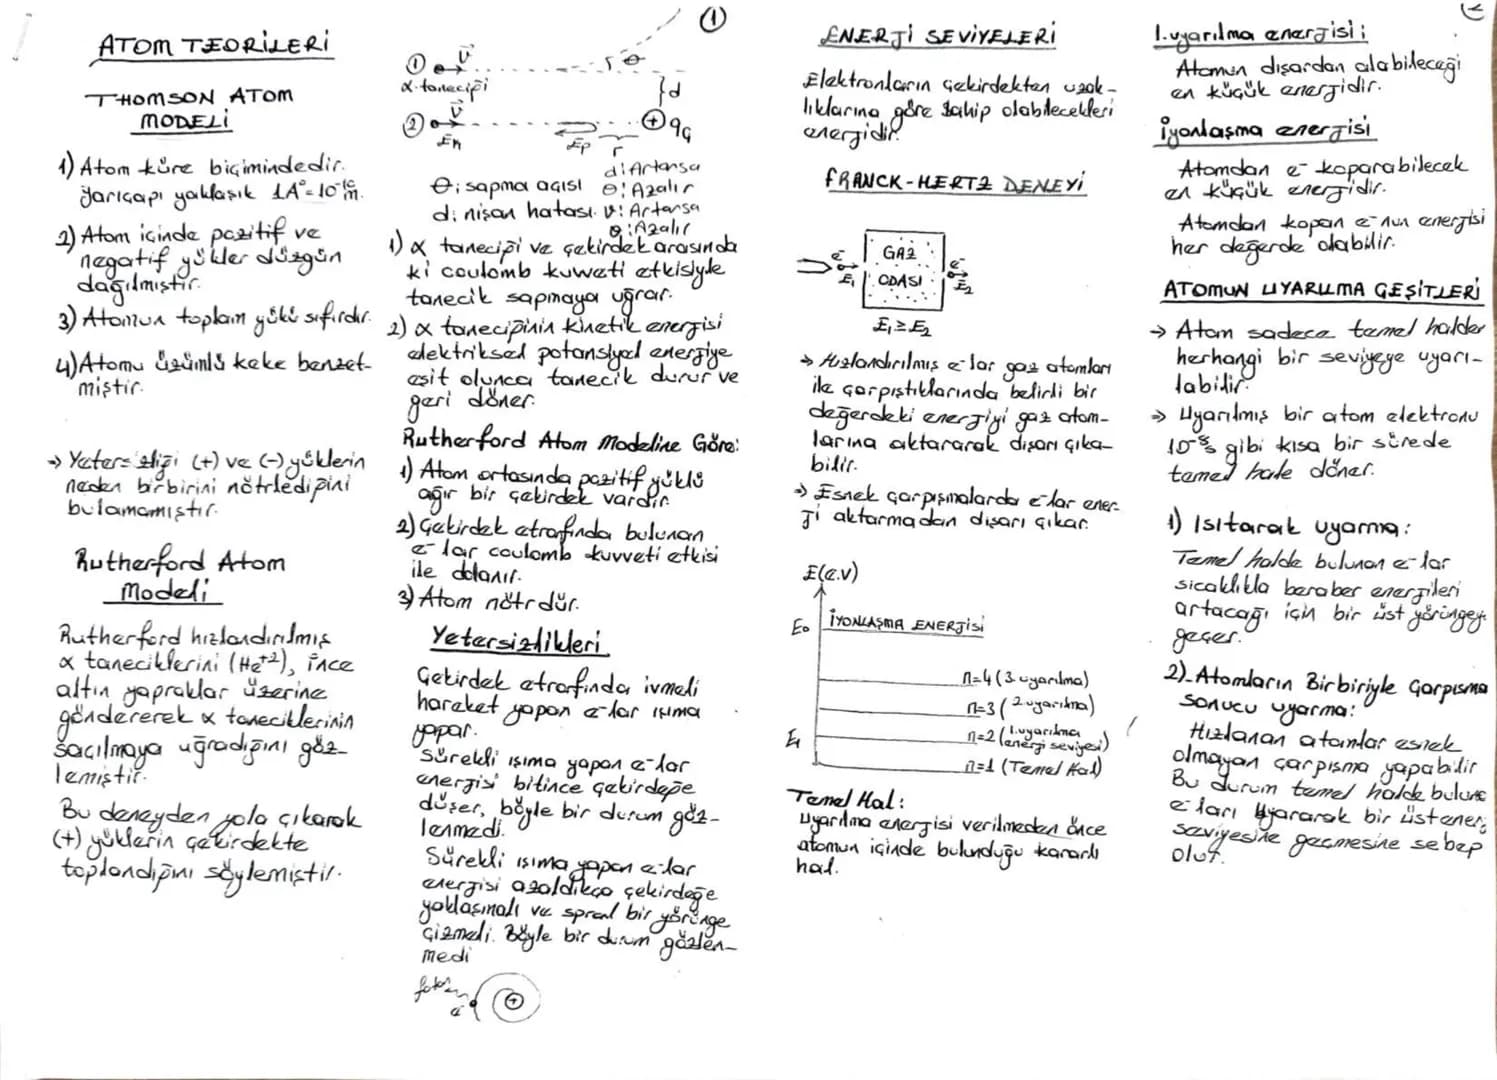 ATOM TEORİLERİ
THOMSON ATOM
MODELİ
1) Atom küre biçimindedir.
Yarıçapı yaklaşık 1A°=10⁻¹⁰m.
2) Atom içinde pozitif ve
negatif yükler düzgün
dağılmıştır.
3) Atomun toplam yükü sıfırdır.
4) Atomu üzümlü keke benzet-
miştir.
→ Yetersizliği (+) ve (-) yüklerin
neden birbirini nötrlediğini
bulamamıştır.
Rutherford Atom
Modeli
Rutherford hızlandırılmış
α taneciklerini (He⁺²), ince
altın yapraklar üzerine
göndererek α taneciklerinin
saçılmaya uğradığını göz-
lemiştir.
Bu deneyden yola çıkarak
(+) yüklerin çekirdekte
toplandığını söylemiştir.
1
① v θ
α-taneciği d
② v + qç
Ek Ep r
d: Artarsa
θ: sapma açısı θ: Azalır
d: nişan hatası. v: Artarsa
θ: Azalır
1) α taneciği ve çekirdek arasında
ki coulomb kuvveti etkisiyle
tanecik sapmaya uğrar.
2) α taneciğinin kinetik energisi
elektriksel potansiyel energiye
eşit olunca tanecik durur ve
geri döner.
Rutherford Atom Modeline Göre:
1) Atom ortasında pozitif yüklü
ağır bir çekirdek vardır.
2) Çekirdek etrafında bulunan
e⁻lar coulomb kuvveti etkisi
ile dolanır.
3) Atom nötrdür.
Yetersizlikleri
Çekirdek etrafında ivmeli
hareket yapan e⁻lar ışıma
yapar.
Sürekli ışıma yapan e⁻lar
energisi bitince çekirdeğe
düşer, böyle bir durum göz-
lenmedi.
Sürekli ışıma yapan e⁻lar
energisi azaldıkça çekirdeğe
yaklaşmalı ve spiral bir yörünge
çizmeli. Böyle bir durum gözlen-
medi
foton
e⁻ +
2
ENERJİ SEVİYELERİ
Elektronların çekirdekten uzak-
lıklarına göre sahip olabilecekleri
energidir.
FRANCK-HERTZ DENEYİ
e⁻ GAZ e⁻
E₁ ODASI E₂
E₁ ≥ E₂
→ Hızlandırılmış e⁻lar gaz atomları
ile çarpıştıklarında belirli bir
değerdeki energiyi gaz atom-
larına aktararak dışarı çıka-
bilir.
→ Esnek çarpışmalarda e⁻lar ener-
ji aktarmadan dışarı çıkar.
E(e.v)
E₀ İYONLAŞMA ENERJİSİ
n=4 (3. uyarılma)
n=3 (2. uyarılma)
n=2 (1. uyarılma
energi seviyesi)
E₁ n=1 (Temel Hal)
Temel Hal:
Uyarılma energisi verilmeden önce
atomun içinde bulunduğu kararlı
hal.
1. uyarılma enerjisi:
Atomun dışardan alabileceği
en küçük enerjidir.
İyonlaşma enerjisi
Atomdan e⁻ koparabilecek
en küçük enerjidir.
Atomdan kopan e⁻nun energisi
her değerde olabilir.
ATOMUN UYARILMA ÇEŞİTLERİ
→ Atom sadece temel halden
herhangi bir seviyeye uyarı-
labilir.
→ Uyarılmış bir atom elektronu
10⁻⁸s gibi kısa bir sürede
temel hale döner.
1) Isıtarak uyarma:
Temel halde bulunan e⁻lar
sıcaklıkla beraber energileri
artacağı için bir üst yörüngeye
geçer.
2) Atomların Birbiriyle Çarpışma
sonucu uyarma:
Hızlanan atomlar esnek
olmayan çarpışma yapabilir
Bu durum temel halde bulunan
e⁻ları uyararak bir üst energi
seviyesine geçmesine sebep
olur.